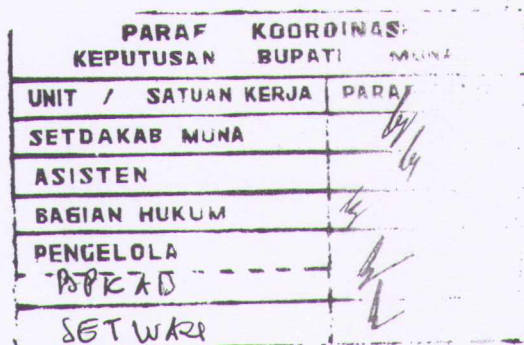 PARAF KOORDINASI
KEPUTUSAN BUPATI MUNA
UNIT / SATUAN KERJA PARAF
SETDAKAB MUNA
ASISTEN
BAGIAN HUKUM
PENGELOLA
BPKAD
SETWAN